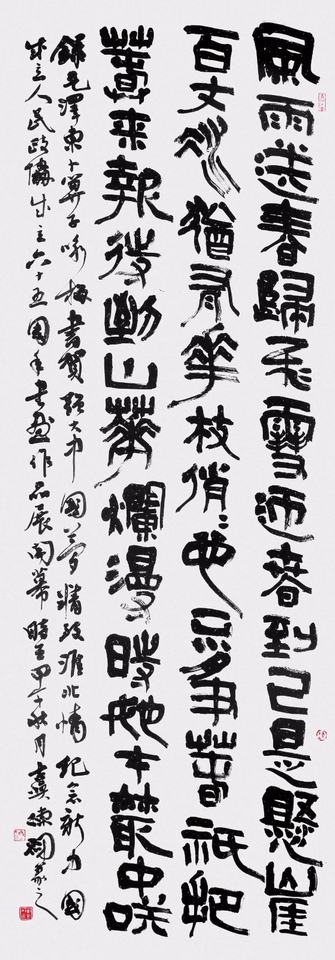 風雨送春歸飛雪迎春到已是懸崖
百丈冰猶有華枝俏〻也不爭春祇把
春來報待到山華爛漫時她在叢中咲
錄毛澤東卜算子咏梅書賀強大中國夢精致淮北情紀念新中國
成立人民政協成立六十五周年書畫作品展開幕時在甲午秋月